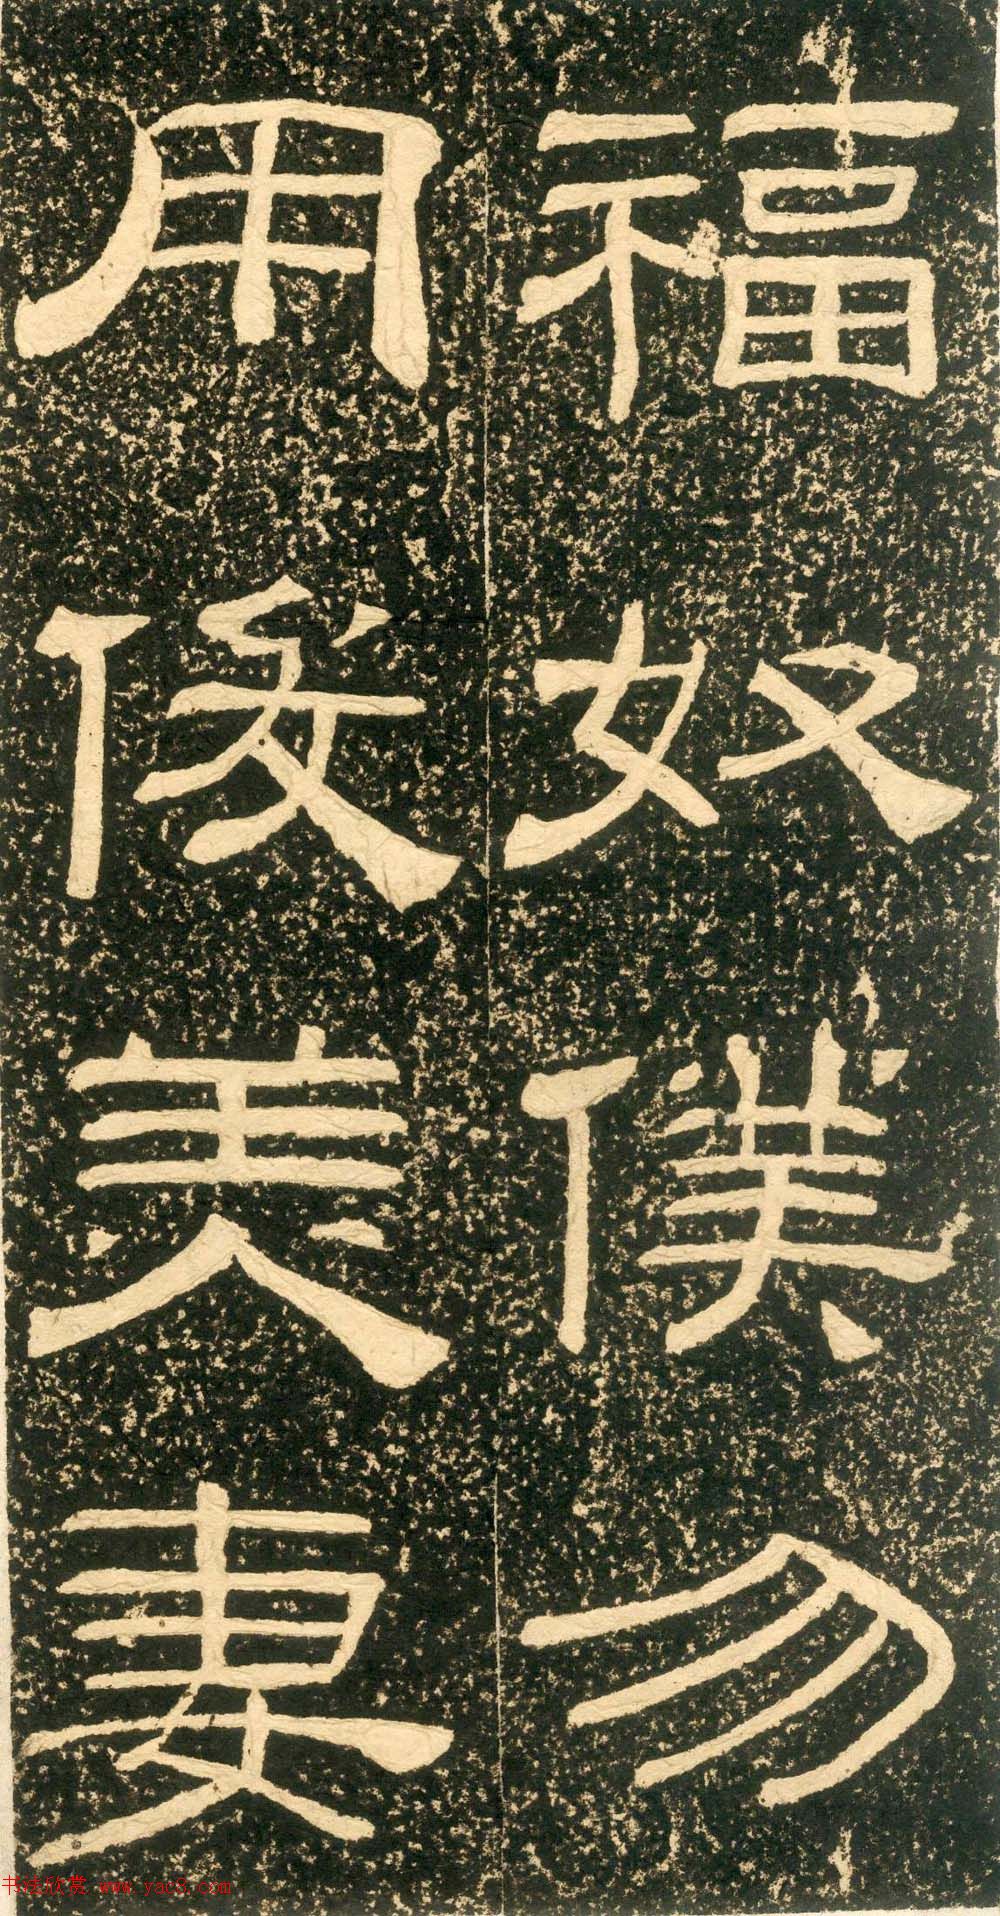 福奴僕勿
用俊美妻
书法欣赏 www.yac8.com